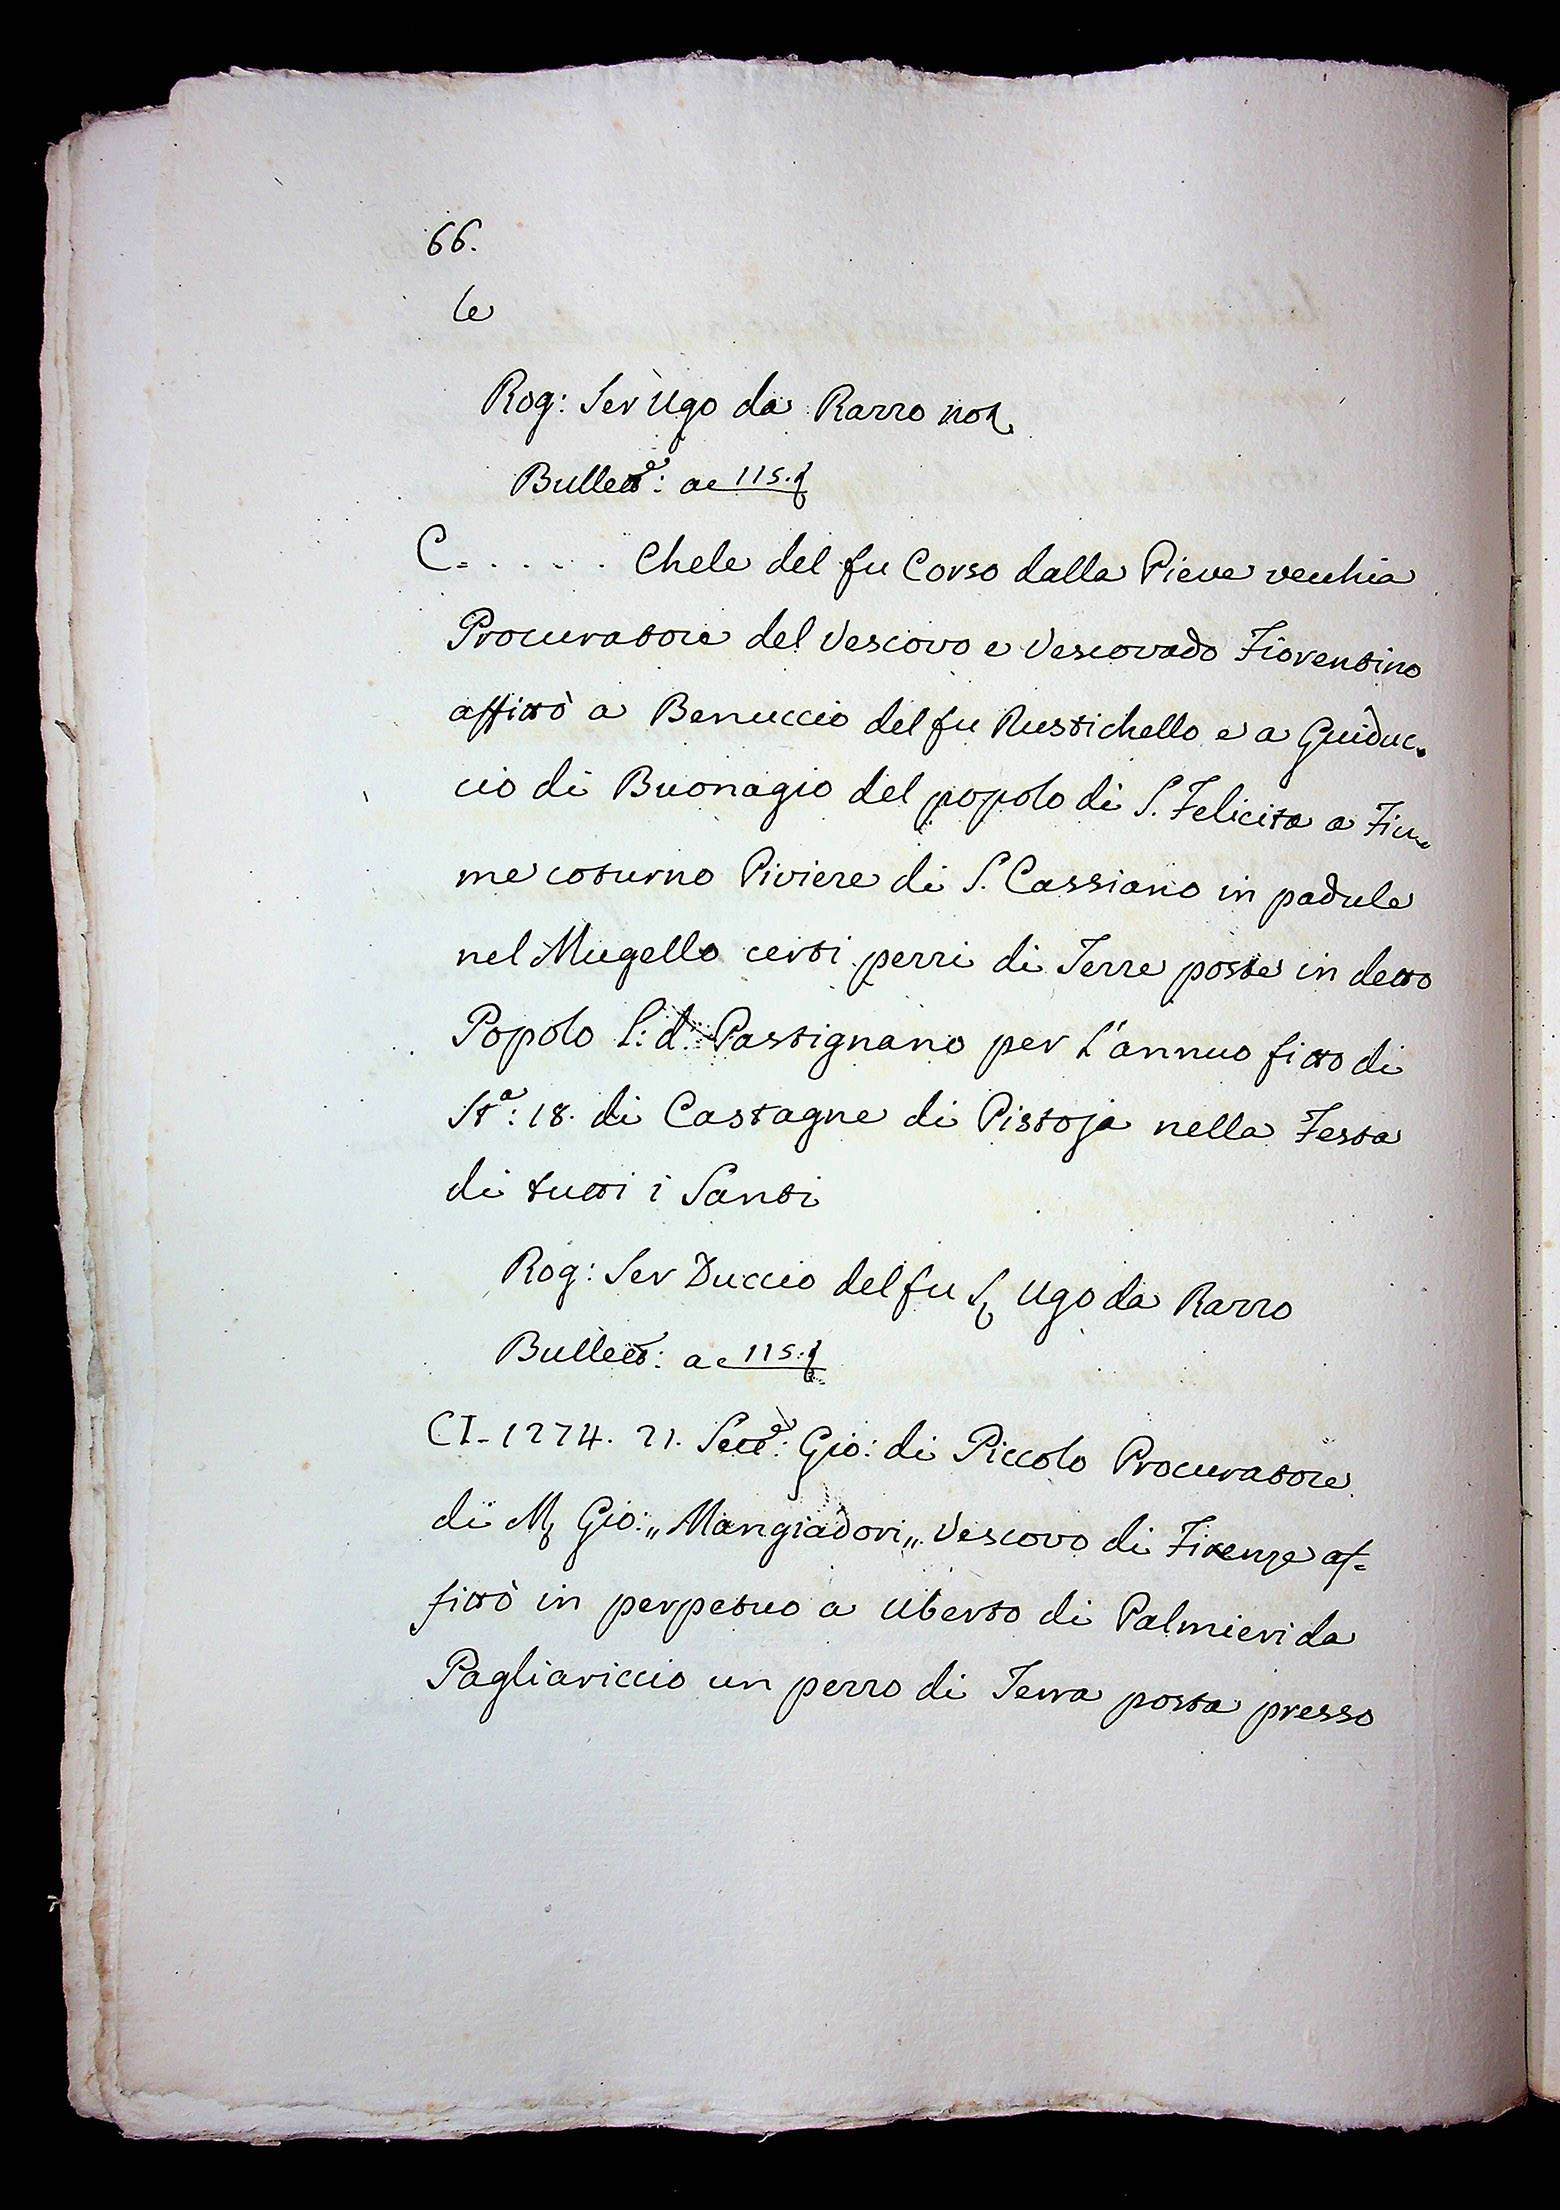 66.
le
Rog: Ser Ugo da Razzo not
Bullett.e: a c 115.
C. . . . . . Chele del fu Corso dalla Pieve vecchia
Procuratore del Vescovo e Vescovado Fiorentino
affittò a Benuccio del fu Rustichello e a Guiduc=
cio di Buonagio del popolo di S. Felicita a Fiu=
me coturno Piviere di S. Cassiano in padule
nel Mugello certi pezzi di Terre poste in detto
Popolo l: d: Pastignano per l'annuo fitto di
St.a: 18. di Castagne di Pistoja nella Festa
di tutti i Santi
Rog: Ser Duccio del fu S. Ugo da Razzo
Bullett: a c 115.
CI. 1274. 21. Sett.e: Gio: di Piccolo Procuratore
di M. Gio: „Mangiadori„ Vescovo di Firenze af=
fittò in perpetuo a Uberto di Palmieri da
Pagliariccio un pezzo di Terra posta presso